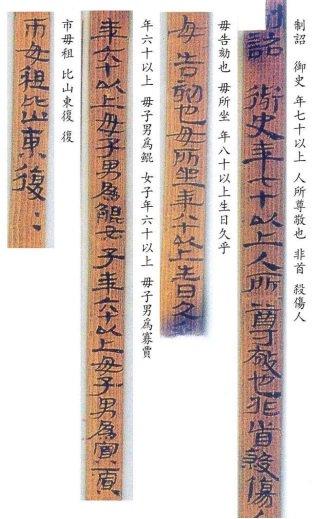 制詔 御史 年七十以上 人所尊敬也 非首 殺傷人
制詔御史年七十以上人所尊敬也非首殺傷人
毋告劾也 毋所坐 年八十以上生日久乎
毋告劾也毋所坐年八十以上生日久乎
年六十以上 毋子男爲鯤 女子年六十以上 毋子男爲寡賈
年六十以上毋子男爲鯤女子年六十以上毋子男爲寡賈
市毋租 比山東復 復
市毋租比山東復〻